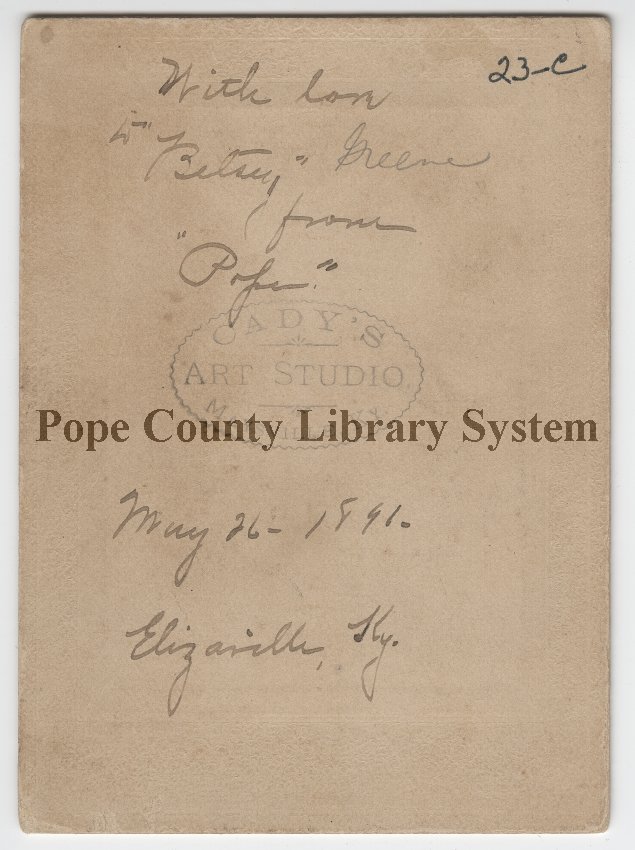 23-C
With love
to "Betsey" Greene
from
"Pope."
CADY'S
ART STUDIO
Pope County Library System
May 26- 1891.
Elizaville, Ky.